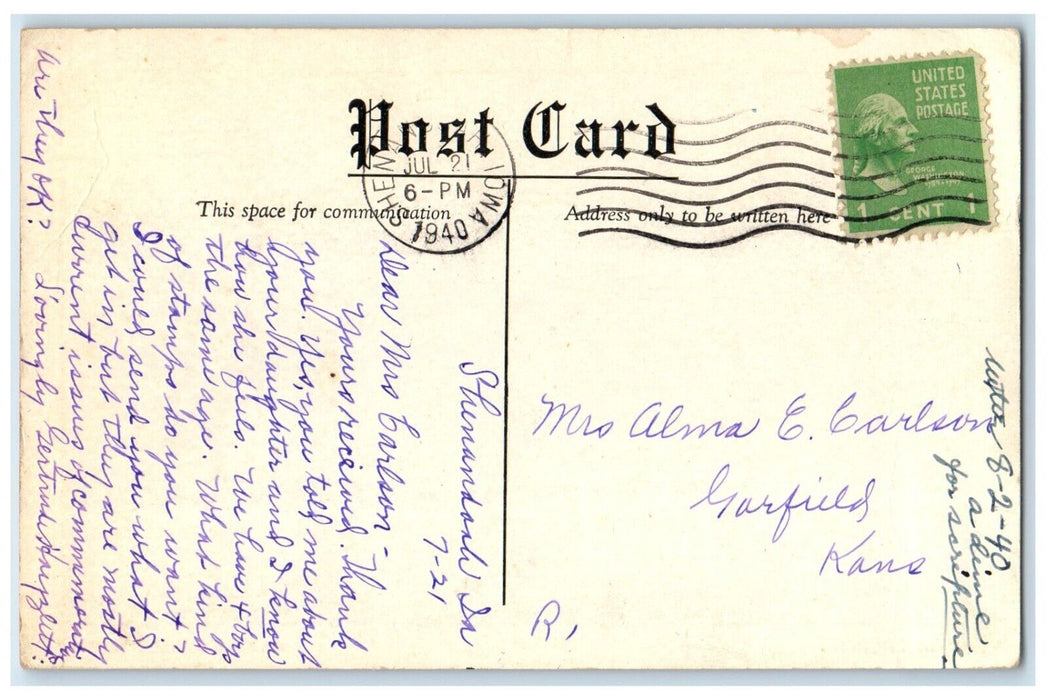 Post Card
This space for communication
Address only to be written here
SHEN IOWA
JUL 21
6-PM
1940
UNITED
STATES
POSTAGE
GEORGE
WASHINGTON
1789-1797
1 CENT 1
Shenandoah Ia
7-21
Dear Mrs Carlson-
Yours received. Thank
you. Yes, you told me about
your daughter and I know
how she feels. We have 4 boys
the same age. What kind
of stamps do you want?
I could send you what I
get in but they are mostly
current issues of commemorative
are they OK?
Lovingly Gertrude
Mrs Alma E. Carlson
Garfield
Kans
R,
8-2-40
a dime
for scripture